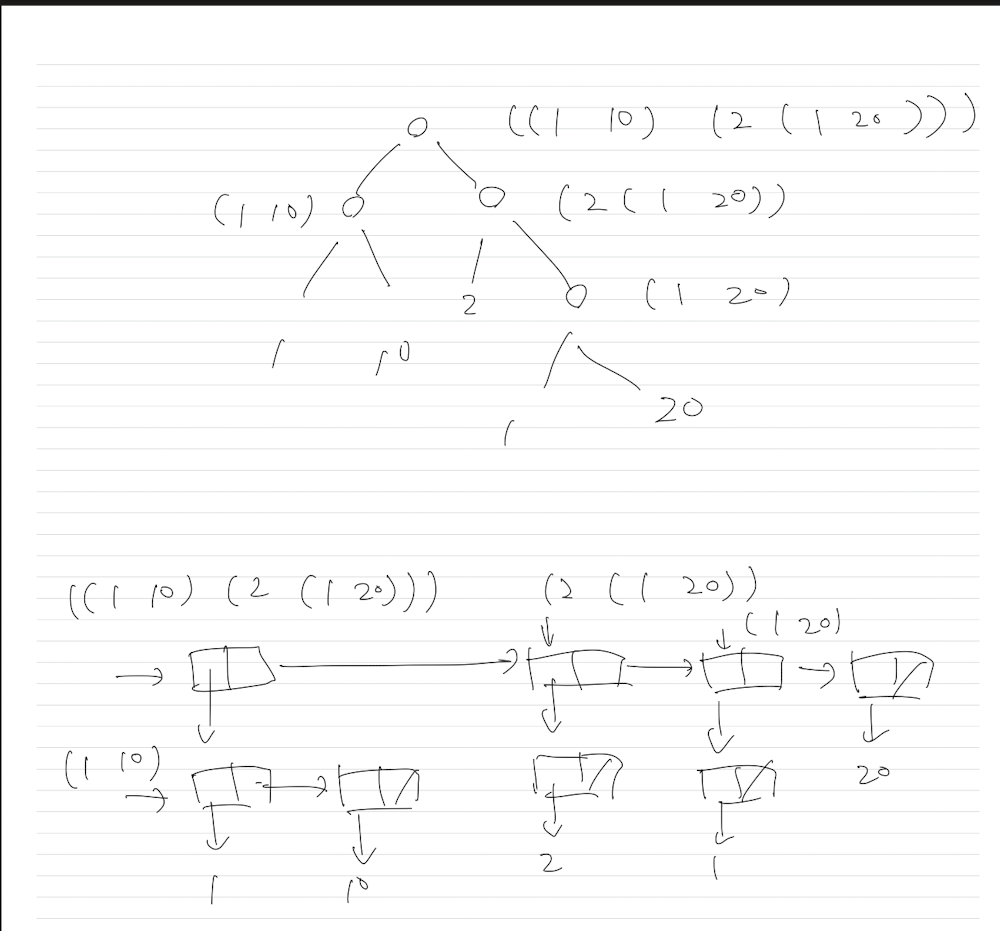 ((1 10) (2 (1 20)))
(1 10) (2 (1 20))
2 (1 20)
1 10
1 20
((1 10) (2 (1 20))) (2 (1 20))
(1 20)
(1 10) 20
1 10 2 1